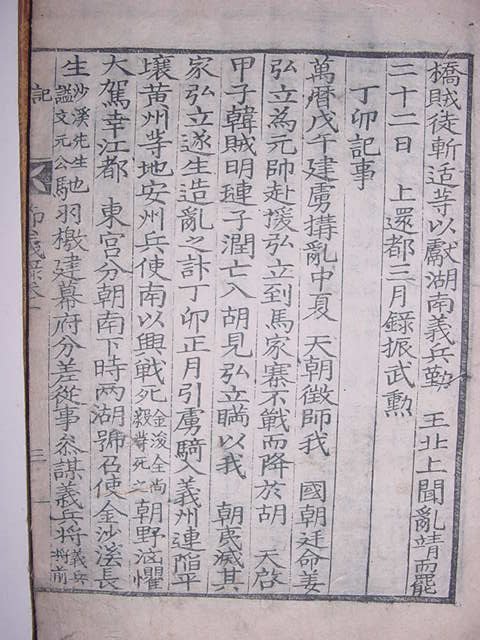 橋賊徒斬适等以獻湖南義兵勤 王北上聞亂靖而罷
二十二日 上還都三月錄振武勳
丁卯記事
萬曆戊午建虜搆亂中夏 天朝徵師我 國朝廷命姜
弘立為元帥赴援弘立到馬家寨不戰而降於胡 天啓
甲子韓賊明璉子潤亡入胡見弘立瞞以我 朝夷滅其
家弘立遂生造亂之計丁卯正月引虜騎入義州連陷平
壤黃州等地安州兵使南以興戰死金浚全尚毅等死之朝野洶懼
大駕幸江都 東宮分朝南下時兩湖號召使金沙溪長
生沙溪先生謚文元公馳羽檄建幕府分差從事參謀義兵將義兵將前
記